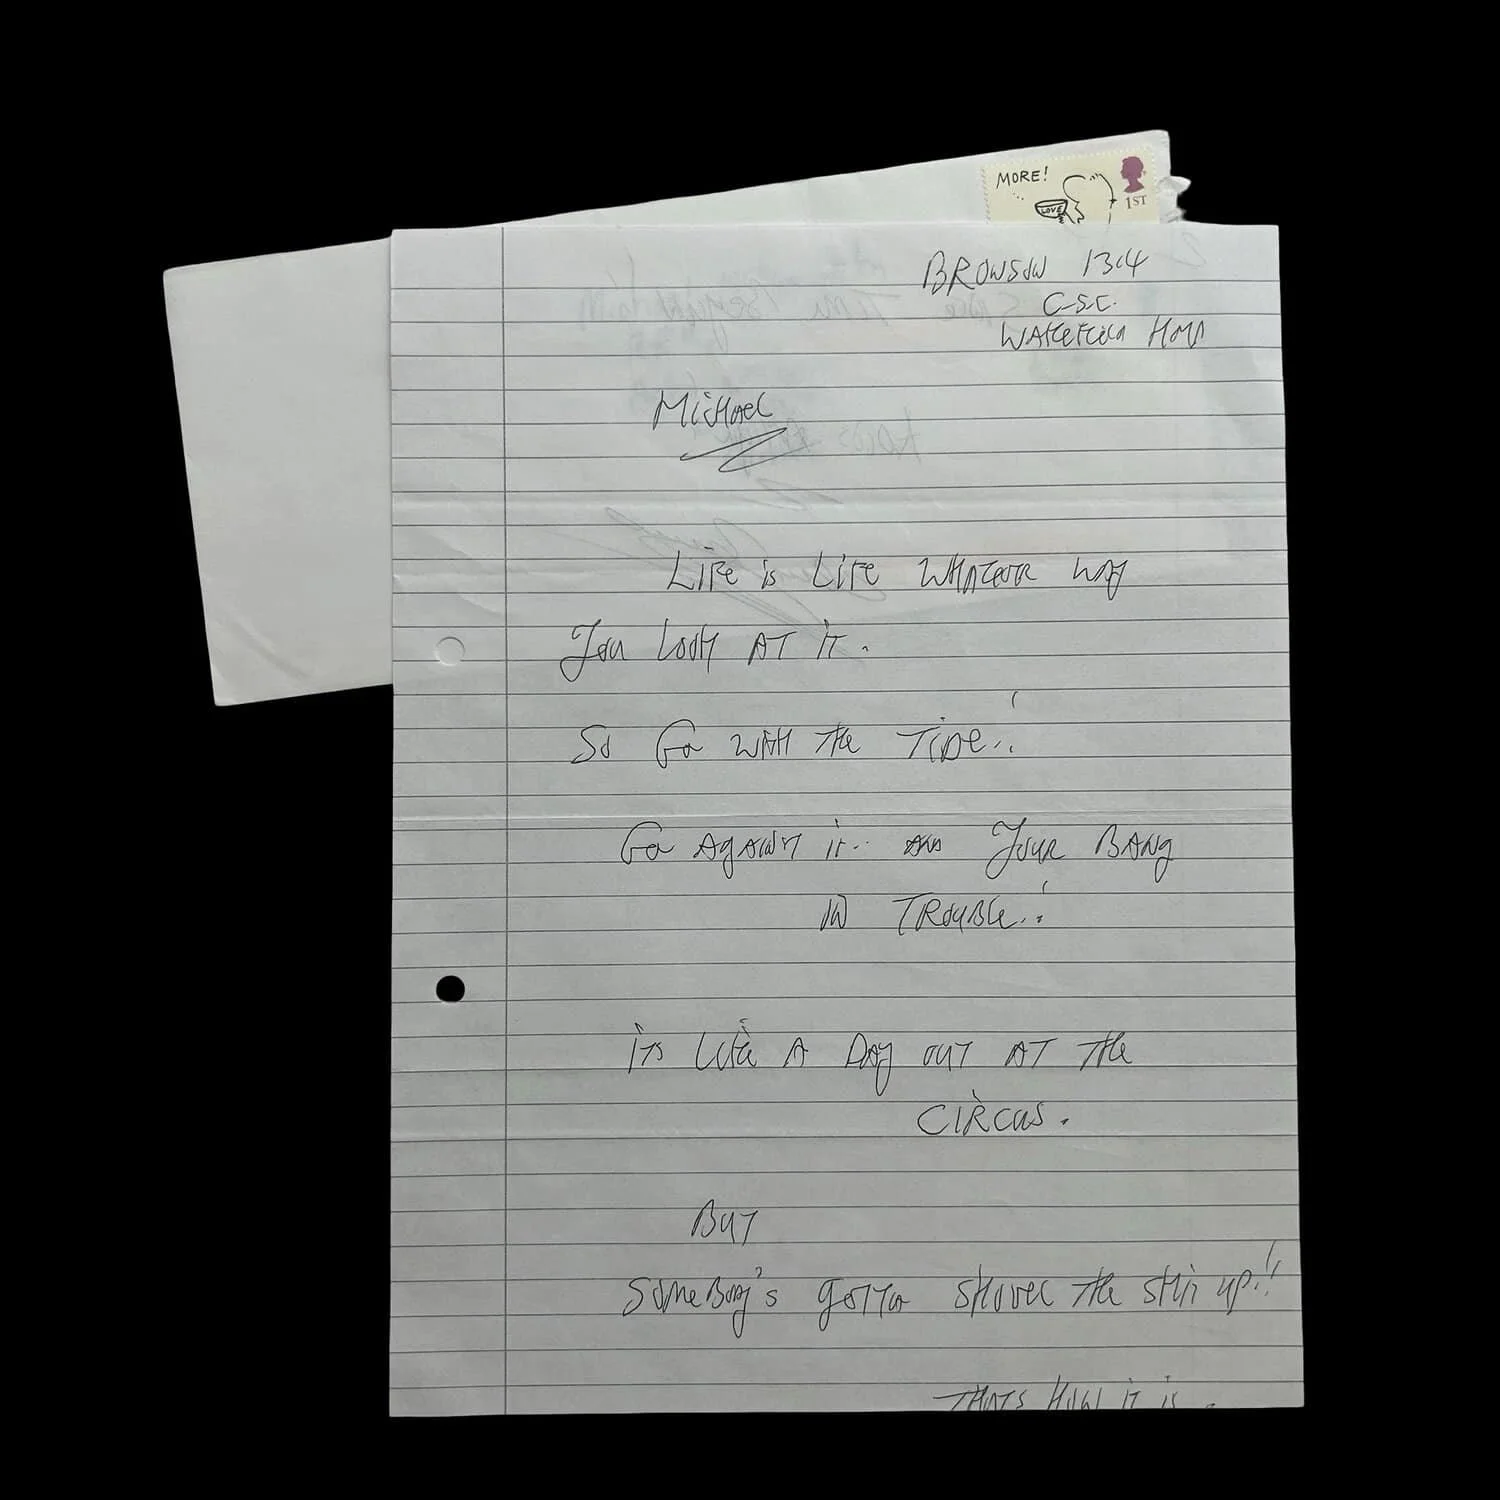 MORE!
LOVE
1ST
BRONSON 1314
C.S.C.
WAKEFIELD HMP
MICHAEL
LIFE is LIFE WHATEVER WAY
You LOOK AT iT.
SO GO WITH THE TIDE..!
GO AGAINST iT.. AN YOUR BANG
IN TROUBLE..!
ITS LIKE A DAY OUT AT THE
CIRCUS.
BUT
SOMEBODY'S GOTTA SHOVEL THE SHIT UP!!
THATS HOW iT is.